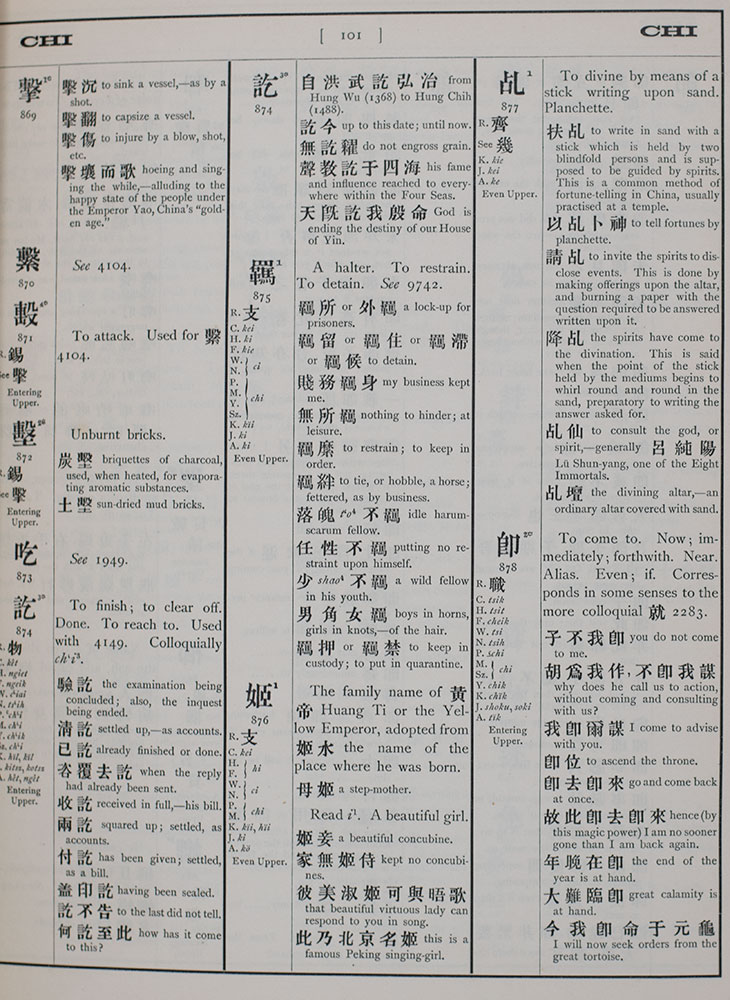 CHI
[ 101 ]
CHI
擊
869
擊沉 to sink a vessel,—as by a
shot.
擊翻 to capsize a vessel.
擊傷 to injure by a blow, shot,
etc.
擊壤而歌 hoeing and sing-
ing the while,—alluding to the
happy state of the people under
the Emperor Yao, China's "gold-
en age."
繫
870
See 4104.
毄
871
R. 錫
See 擊
Entering
Upper.
To attack. Used for 繫
4104.
墼
872
R. 錫
See 擊
Entering
Upper.
Unburnt bricks.
炭墼 briquettes of charcoal,
used, when heated, for evapora-
ting aromatic substances.
土墼 sun-dried mud bricks.
吃
873
See 1949.
訖
874
R. 物
Entering
Upper.
To finish; to clear off.
Done. To reach to. Used
with 4149. Colloquially
ch'i³.
驗訖 the examination being
concluded; also, the inquest
being ended.
清訖 settled up,—as accounts.
已訖 already finished or done.
咨覆去訖 when the reply
had already been sent.
收訖 received in full,—his bill.
兩訖 squared up; settled, as
accounts.
付訖 has been given; settled,
as a bill.
蓋印訖 having been sealed.
訖不告 to the last did not tell.
何訖至此 how has it come
to this?
訖
874
自洪武訖弘治 from
Hung Wu (1368) to Hung Chih
(1488).
訖今 up to this date; until now.
無訖糴 do not engross grain.
聲敎訖于四海 his fame
and influence reached to every-
where within the Four Seas.
天旣訖我殷命 God is
ending the destiny of our House
of Yin.
羈¹
875
R. 支
C. kei
H. ki
F. kie
W.
N. ci
P.
M.
Y. chi
Sz.
K. kïi
J. ki
A. ki
Even Upper.
A halter. To restrain.
To detain. See 9742.
羈所 or 外羈 a lock-up for
prisoners.
羈留 or 羈住 or 羈滯
or 羈候 to detain.
賤務羈身 my business kept
me.
無所羈 nothing to hinder; at
leisure.
羈縻 to restrain; to keep in
order.
羈絆 to tie, or hobble, a horse;
fettered, as by business.
落魄 t'o⁴ 不羈 idle harum-
scarum fellow.
任性不羈 putting no re-
straint upon himself.
少 shao⁴ 不羈 a wild fellow
in his youth.
男角女羈 boys in horns,
girls in knots,—of the hair.
羈押 or 羈禁 to keep in
custody; to put in quarantine.
姬¹
876
R. 支
C. kei
H.
F. ki
W.
N. ci
P.
M. chi
K. kïi, hïi
J. ki
A. kö
Even Upper.
The family name of 黃
帝 Huang Ti or the Yel-
low Emperor, adopted from
姬水 the name of the
place where he was born.
母姬 a step-mother.
Read i¹. A beautiful girl.
姬妾 a beautiful concubine.
家無姬侍 kept no concubi-
nes.
彼美淑姬可與晤歌
that beautiful virtuous lady can
respond to you in song.
此乃北京名姬 this is a
famous Peking singing-girl.
乩¹
877
R. 齊
See 幾
K. kie
J. kei
A. ke
Even Upper.
To divine by means of a
stick writing upon sand.
Planchette.
扶乩 to write in sand with a
stick which is held by two
blindfold persons and is sup-
posed to be guided by spirits.
This is a common method of
fortune-telling in China, usually
practised at a temple.
以乩卜神 to tell fortunes by
planchette.
請乩 to invite the spirits to dis-
close events. This is done by
making offerings upon the altar,
and burning a paper with the
question required to be answered
written upon it.
降乩 the spirits have come to
the divination. This is said
when the point of the stick
held by the mediums begins to
whirl round and round in the
sand, preparatory to writing the
answer asked for.
乩仙 to consult the god, or
spirit,—generally 呂純陽
Lü Shun-yang, one of the Eight
Immortals.
乩壇 the divining altar,—an
ordinary altar covered with sand.
卽
878
R. 職
C. tsik
H. tsit
F. cheik
W. tsi
N. tsih
P. schi
M.
Sz. chi
Y. chik
K. chïk
J. shoku, soki
A. tïk
Entering
Upper.
To come to. Now; im-
mediately; forthwith. Near.
Alias. Even; if. Corres-
ponds in some senses to the
more colloquial 就 2283.
子不我卽 you do not come
to me.
胡爲我作,不卽我謀
why does he call us to action,
without coming and consulting
with us?
我卽爾謀 I come to advise
with you.
卽位 to ascend the throne.
卽去卽來 go and come back
at once.
故此卽去卽來 hence (by
this magic power) I am no sooner
gone than I am back again.
年晚在卽 the end of the
year is at hand.
大難臨卽 great calamity is
at hand.
今我卽命于元龜
I will now seek orders from the
great tortoise.